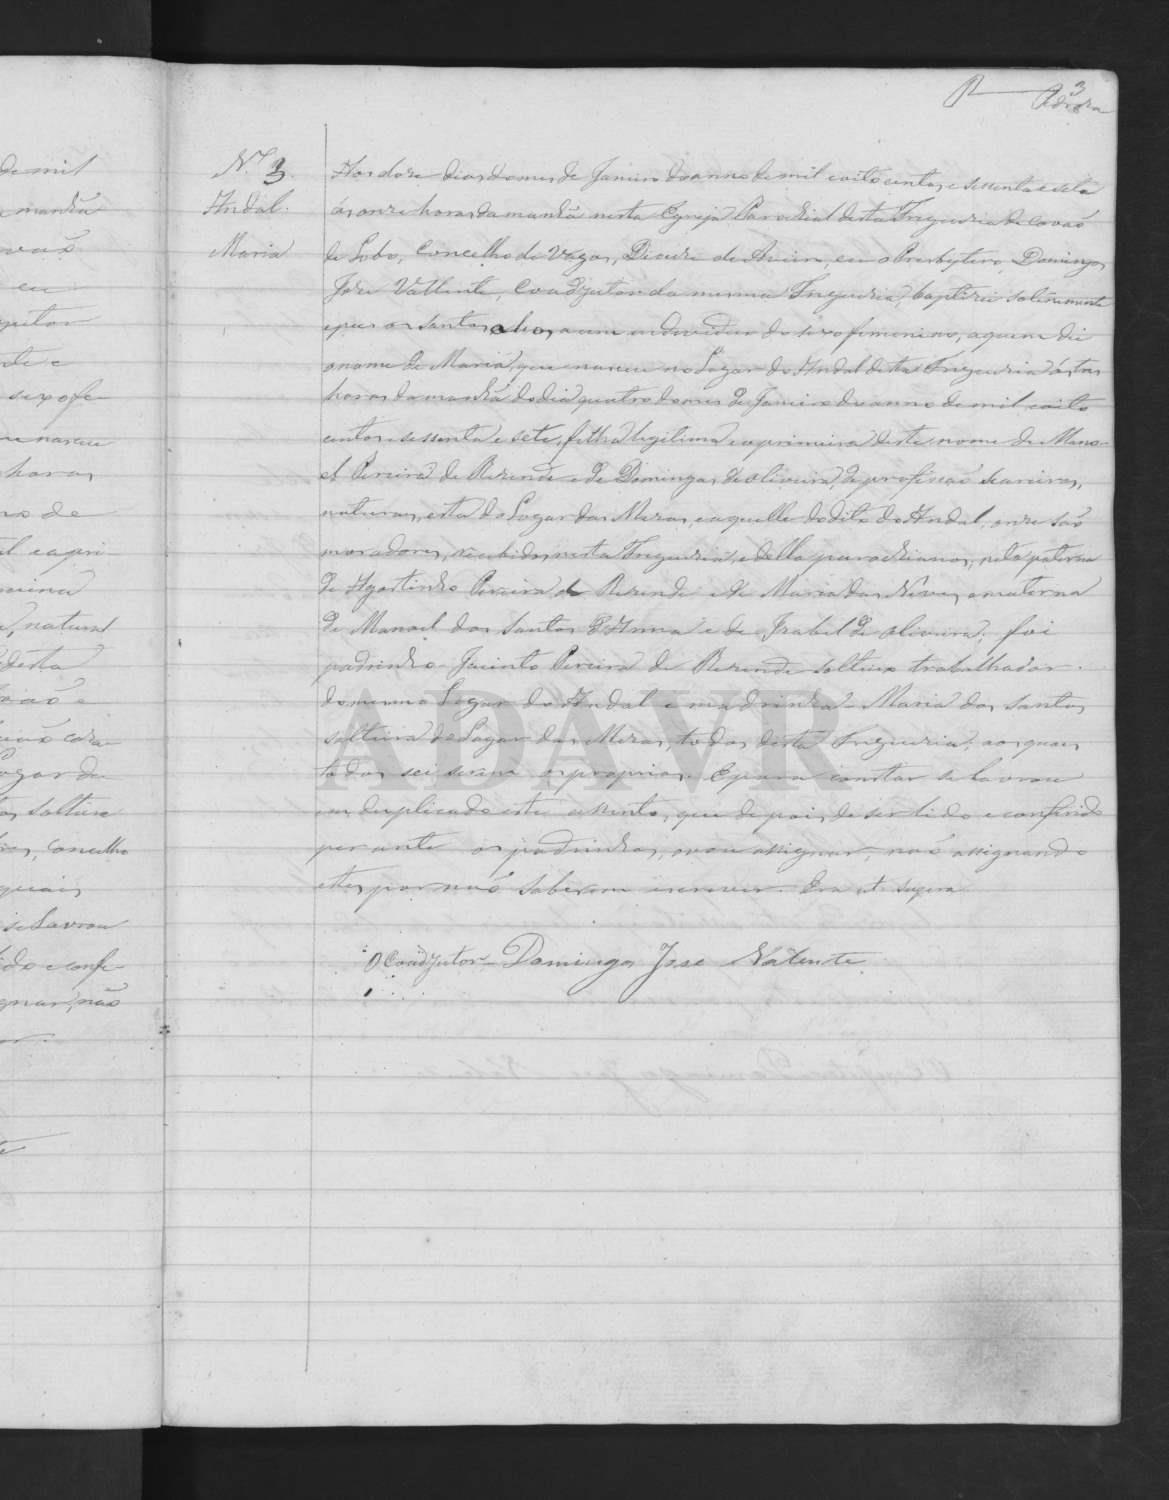 3
N.º 3
Andal
Maria
Aos doze dias do mes de Janeiro do anno de mil e oito centos e sessenta e sete
ás onze horas da manhã nesta Egreja Parochial desta Freguezia de Covaõ
de Lobo, Concelho de Vagos, Diocese de Aveiro, eu o Presbytero Domingos
Jose Vallente, Coadjutor da mesma Freguezia, baptizei solemnemente
e puz os santos oleos a um individuo do sexo femenino, a quem dei
o nome de Maria, que nasceu no Lugar do Andal desta Freguezia ás tres
horas da manhã do dia quatro do mes de Janeiro do anno de mil e oito
centos e sessenta e sete, filha legitima e a primeira deste nome de Mano-
el Pereira de Rezende e de Domingas de Oliveira, de profissaõ seareiros,
naturaes, esta do Lugar das Mezas, e aquelle do dito do Andal, onde saõ
moradores, recebidos nesta Freguezia, e della parochianos, neta paterna
de Agostinho Pereira de Rezende e de Maria das Neves, e materna
de Manoel dos Santos d'Anna e de Izabel de Oliveira; foi
padrinho Jacinto Pereira de Rezende solteiro trabalhador
do mesmo Lugar do Andal e madrinha Maria dos Santos
solteira do Lugar das Mezas, todos desta Freguezia, os quaes
todos sei serem os proprios. E para constar se lavrou
em duplicado este assento, que depois de ser lido e conferido
perante os padrinhos, vou assignar, naõ assignando
elles por naõ saberem escrever. Era ut supra
O Coadjutor Domingos Jose Valente
ADAVR
de mil
manhã
eu
sexo fe-
nasceu
horas
no de
e a pri-
natural
desta
Lugar do
solteira
concelho
quaes
se lavrou
lido e confe-
gnar, naõ